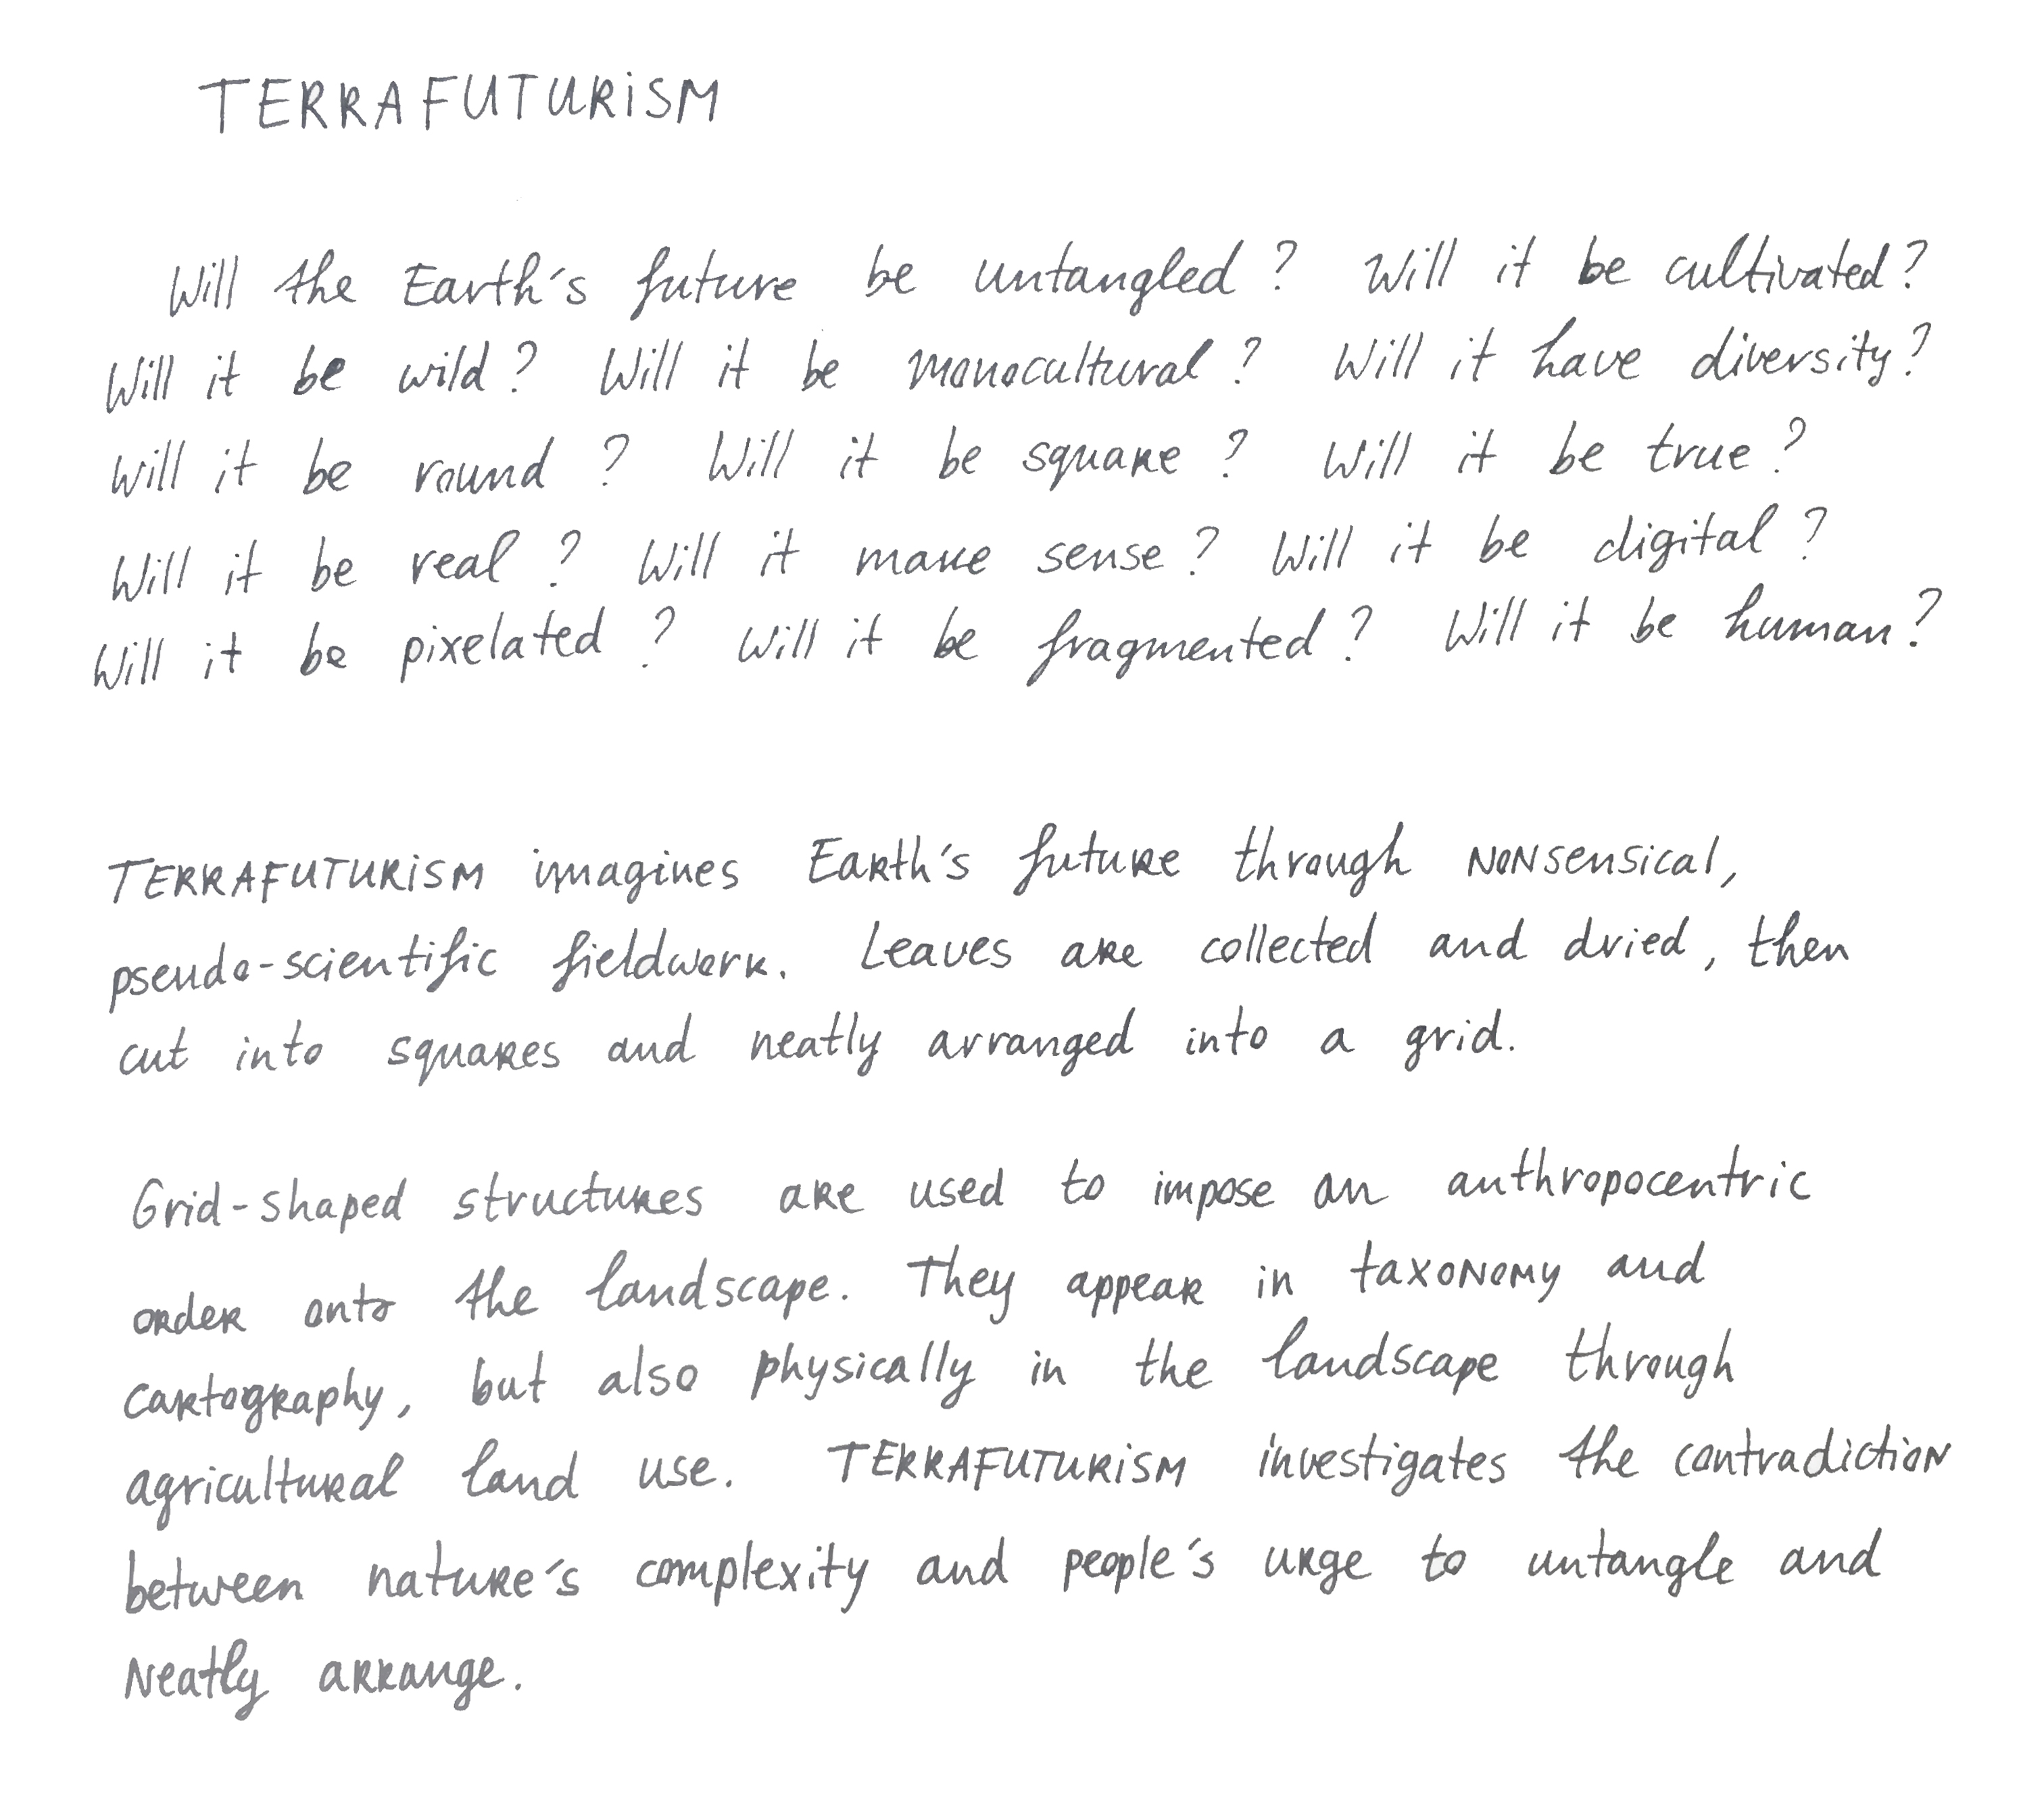 TERRAFUTURiSM
Will the Earth's future be untangled? Will it be cultivated?
Will it be wild? Will it be monocultural? Will it have diversity?
Will it be round? Will it be square? Will it be true?
Will it be real? Will it make sense? Will it be digital?
Will it be pixelated? Will it be fragmented? Will it be human?
TERRAFUTURiSM imagines Earth's future through nonsensical,
pseudo-scientific fieldwork. Leaves are collected and dried, then
cut into squares and neatly arranged into a grid.
Grid-shaped structures are used to impose an anthropocentric
order onto the landscape. They appear in taxonomy and
cartography, but also physically in the landscape through
agricultural land use. TERRAFUTURiSM investigates the contradiction
between nature's complexity and people's urge to untangle and
neatly arrange.